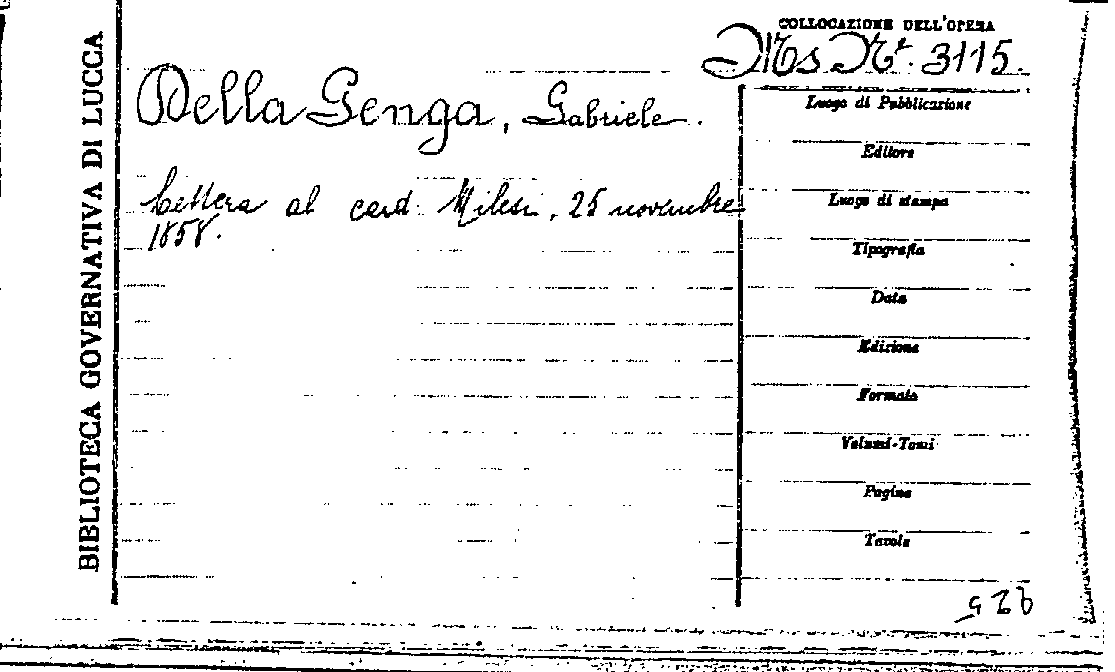 BIBLIOTECA GOVERNATIVA DI LUCCA
COLLOCAZIONE DELL'OPERA
Ms Nr. 3115.
Della Genga, Gabriele.
Lettera al card. Milesi, 25 novembre
1858.
Luogo di Pubblicazione
Editore
Luogo di stampa
Tipografia
Data
Edizione
Formato
Volumi-Tomi
Pagine
Tavole